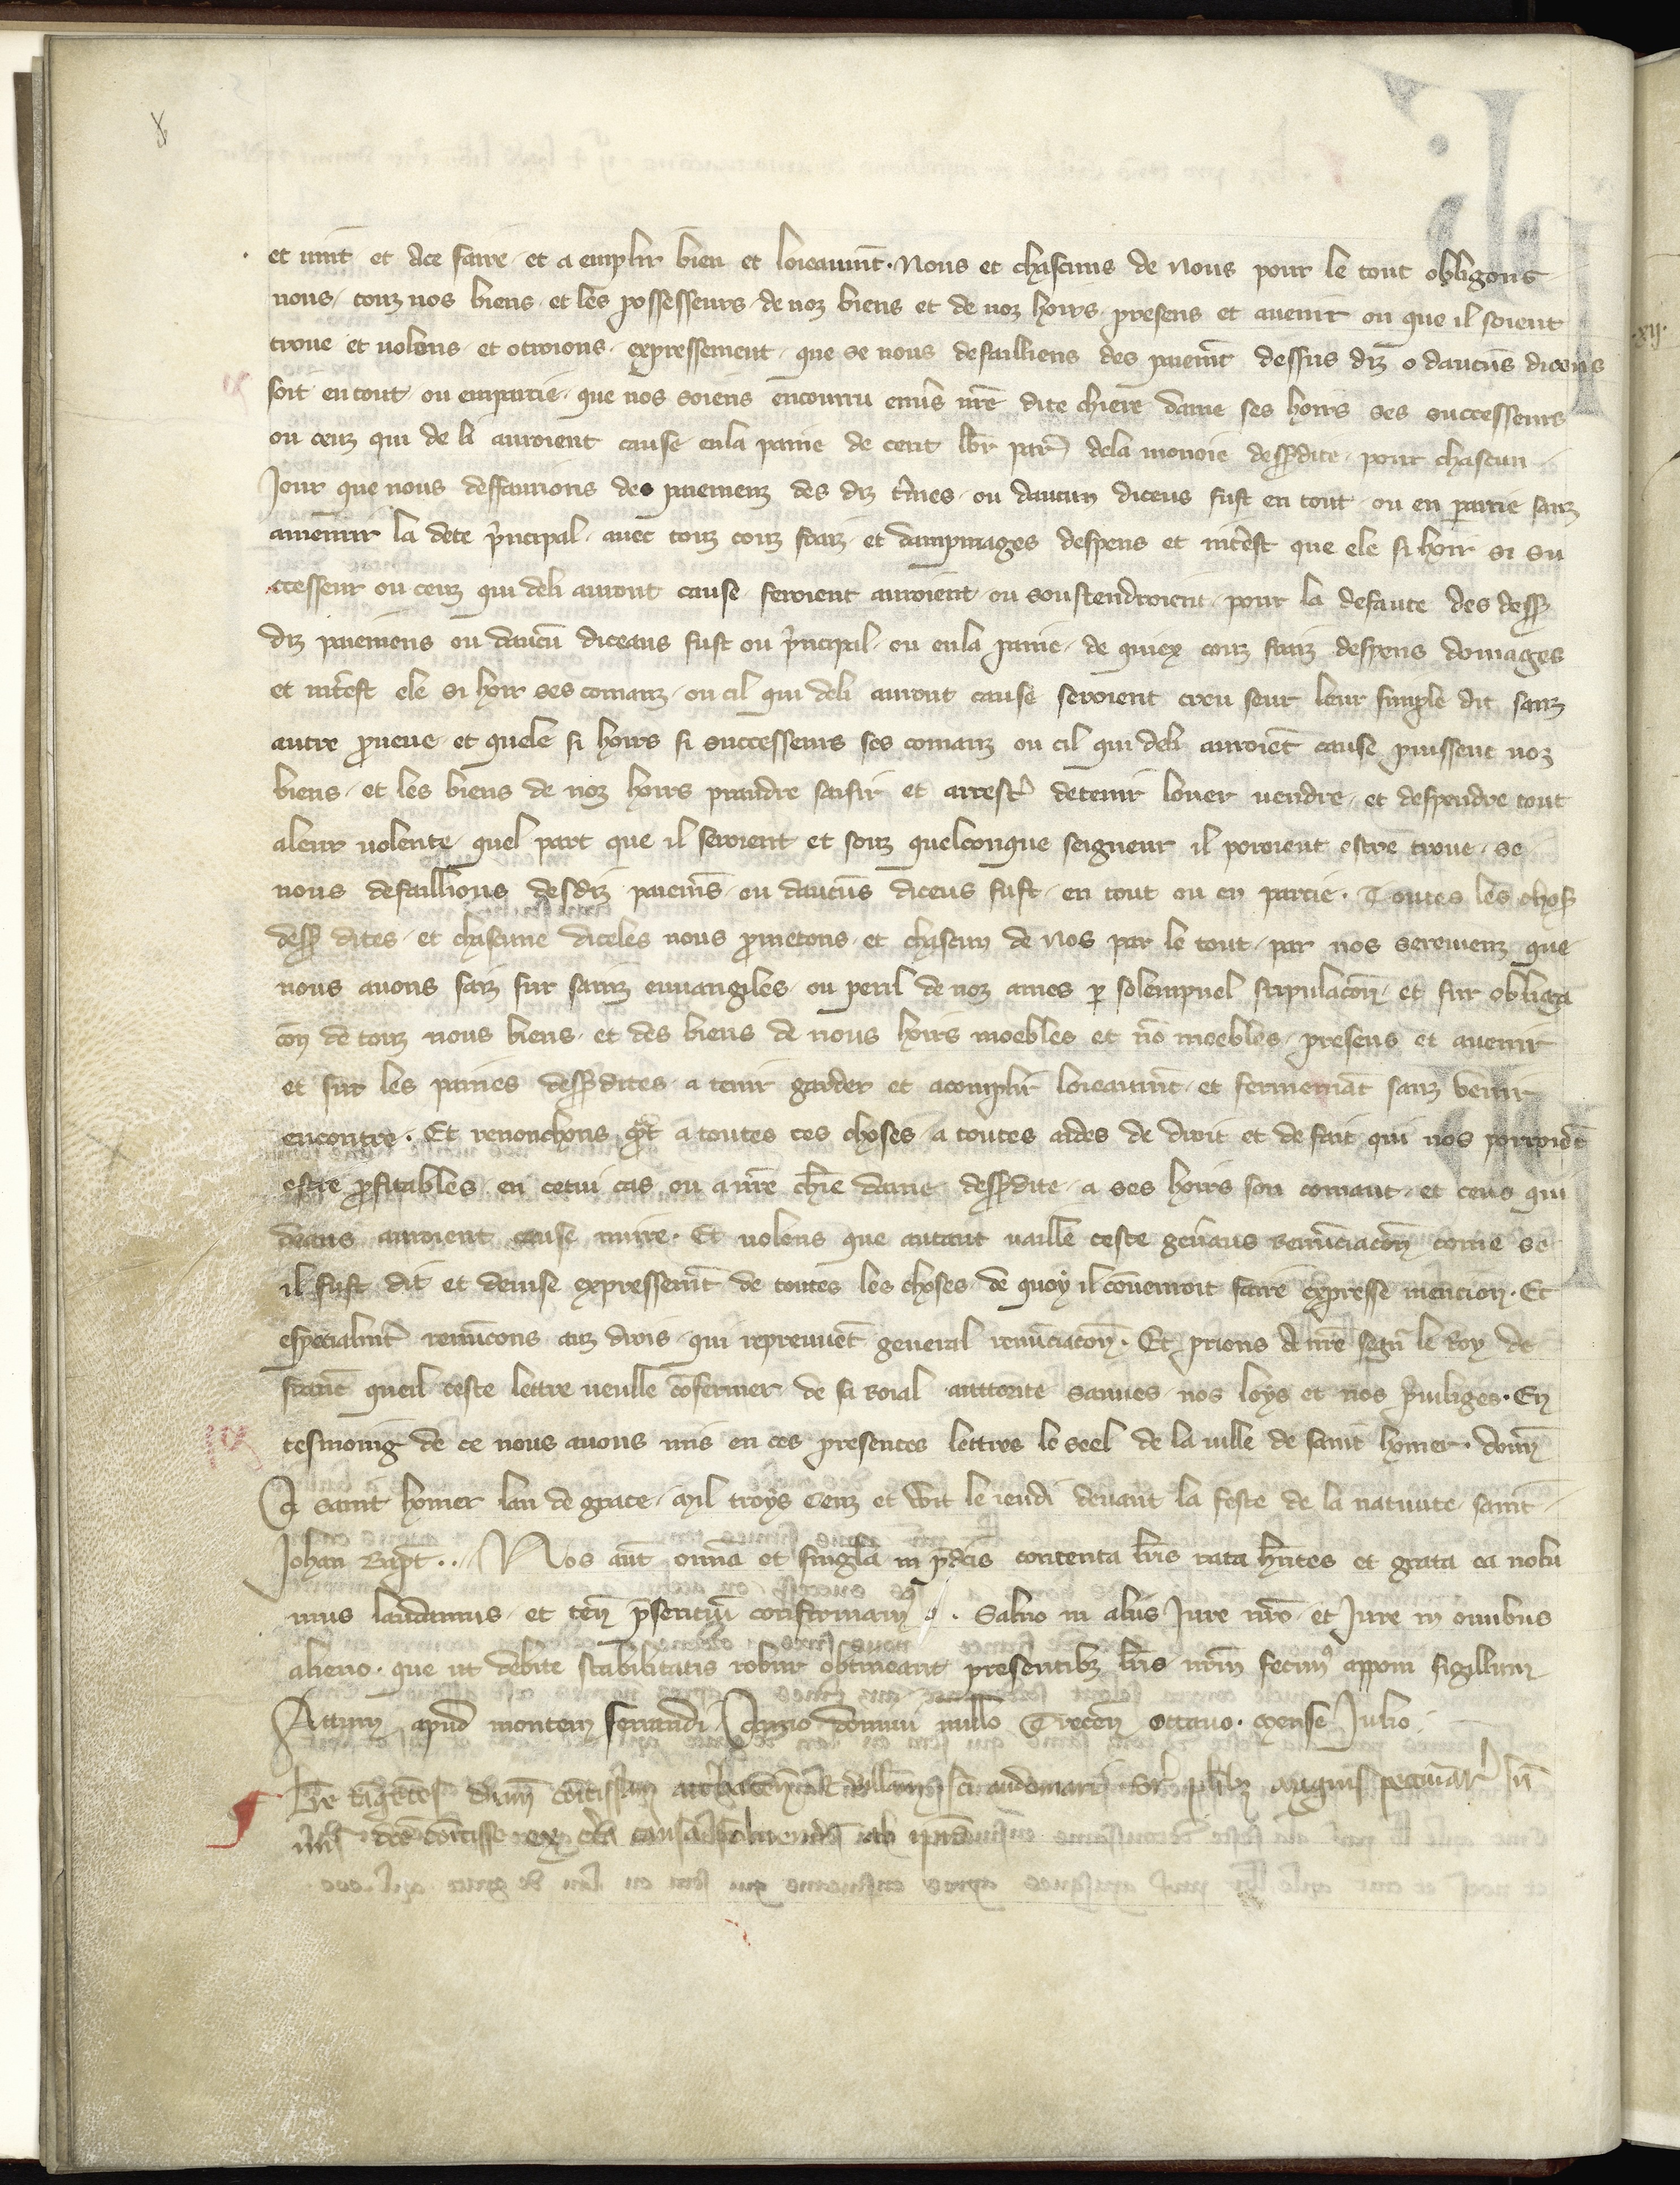 et uuit et a ce faire et a emplir bien et loieaumt. Nous et chascuns de nous pour le tout obligons
nous touz nos biens et les possesseurs de noz biens et de noz hoirs presens et auenir ou que il soient
troue et uolons et otroions expressement que se nous defailliens des paiemt dessus diz o daucuns diceus
soit en tout ou empartie que nos soiens encourru enuers nre dite chiere dame ses hoirs ses successeurs
ou ceuz qui de li auroient cause enla paine de cent lbr par dela monoie desdite pour chascun
Jour que nous deffaurions de paiemenz des diz tmes ou daucun diceus fust en tout ou en partie sanz
amenrir la dete principal auec touz couz fraiz et dampmages despens et interest que ele si hoir si su
ccesseur ou ceuz qui deli auront cause feroient auroient ou soustendroient pour la defaute des dess
diz paiemens ou daucu diceaus fust ou principal ou enla paine de quiex couz fraiz despens domages
et interest ele si hoir ses comanz ou cil qui deli auront cause seroient creu seur leur simple dit sanz
autre proeue et quele si hoirs si successeurs ses comanz ou cil qui deli auroiet cause puissent noz
biens et les biens de noz hoirs prandre saisir et arrester detenir louer uendre et despendre tout
aleur uolente quel part que il seroient et souz quelconque seigneur il poroient estre troue se
nous defaillions desdiz paiems ou daucuns diceus fust en tout ou en partie. Toutes les chos
dess dites et chascune diceles nous prometons et chascun de nos par le tout par nos seremenz que
nous auons faiz sur sainz euuangiles ou peril de noz ames p solempnel stipulacon et sur obliga
con de touz nous biens et des biens de nous hoirs moebles et no moebles presens et auenir
et sur les paines dessdites a tenir garder et acomplir loieaumt et fermemat sanz venir
encontre. Et renonchons quat a toutes ces choses a toutes aides de droit et de fait qui nos porroiet
estre profitables en cetui cas ou a nre chie dame dessdite a ses hoirs son comant et ceus qui
deaus auroient cause nuire. Et uolons que autant uaille ceste generaus renuciacon come se
il fust dit et deuise expressemt de toutes les choses de quoy il couenroit faire expresse mencion. Et
especialmt renucons auz drois qui repreuuet general renuciacon. Et prions a nre segn le Roy de
franc queil ceste lettre ueulle cofermer de sa roial auttorite sauues nos loys et nos priuileges. En
tesmonig de ce nous auons mis en ces presentes lettres le seel de la uille de saint homer. donn
A saint homer lan de grace mil troys cenz et wit le ieudi deuant la feste de la natiuite saint
Johan Bapt. Nos aut onna et singla in pdcis contenta lris rata hntes et grata ea uolu
mus laudamus et ten psentiu confirmam. Saluo in aliis Jure nro et Jure in omibus
alieno. que ut debite stabilitatis robur obtineant presentibz lris nrm fecim apponi sigillum
Actum apud montem ferrandi Anno domini millo Trecen octauo. mense Julio